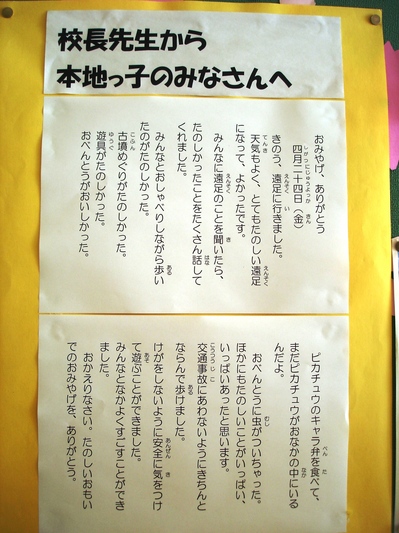 校長先生から
本地っ子のみなさんへ
おみやげ、ありがとう
四月二十四日（金）
きのう、遠足に行きました。
天気もよく、とてもたのしい遠足
になって、よかったです。
みんなに遠足のことを聞いたら、
たのしかったことをたくさん話して
くれました。
みんなとおしゃべりしながら歩い
たのがたのしかった。
古墳めぐりがたのしかった。
遊具がたのしかった。
おべんとうがおいしかった。
ピカチュウのキャラ弁を食べて、
まだピカチュウがおなかの中にいる
んだよ。
おべんとうに虫がついちゃった。
ほかにもたのしいことがいっぱい、
いっぱいあったと思います。
交通事故にあわないようにきちんと
ならんで歩けました。
けがをしないように安全に気をつけ
て遊ぶことができました。
みんなとなかよくすごすことができ
ました。
おかえりなさい。たのしいおもい
でのおみやげを、ありがとう。